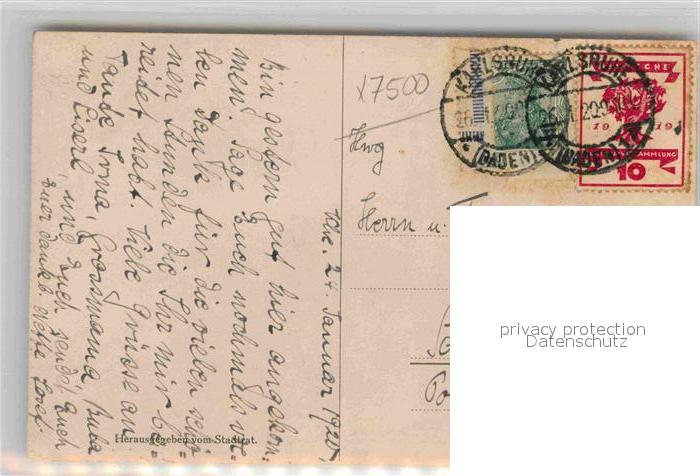 Khe. 24. Januar 1920.
Bin gestern gut hier angekom-
men. Sage Euch nochmals vie-
len Dank für die vielen schö-
nen Stunden die Ihr mir be-
reitet habt. Viele Grüsse an
Tante Irma, Grossmama Buba
und Liserl, und Euch sendet Euch
Euer dankb. Neffe Josef
Herausgegeben vom Stadtrat.
17500
Hwg
Herrn u.
KARLSRUHE
(BADEN)
KARLSRUHE
(BADEN)
1919
10
privacy protection
Datenschutz